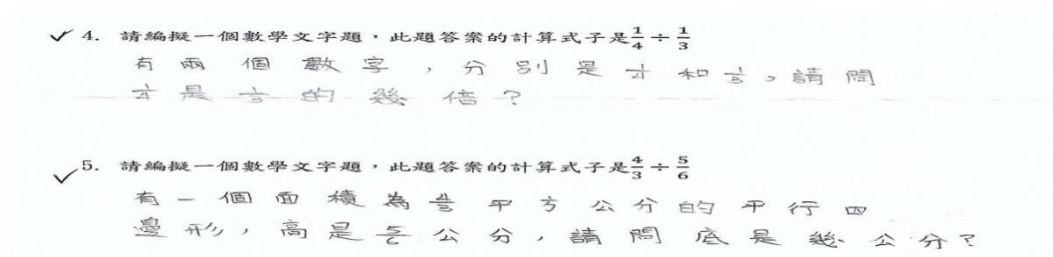 ✓ 4. 請編擬一個數學文字題，此題答案的計算式子是1/4÷1/3
有兩個數字，分別是1/4和1/3，請問
1/4是1/3的幾倍？
✓ 5. 請編擬一個數學文字題，此題答案的計算式子是4/3÷5/6
有一個面積為4/3平方公分的平行四
邊形，高是5/6公分，請問底是幾公分？